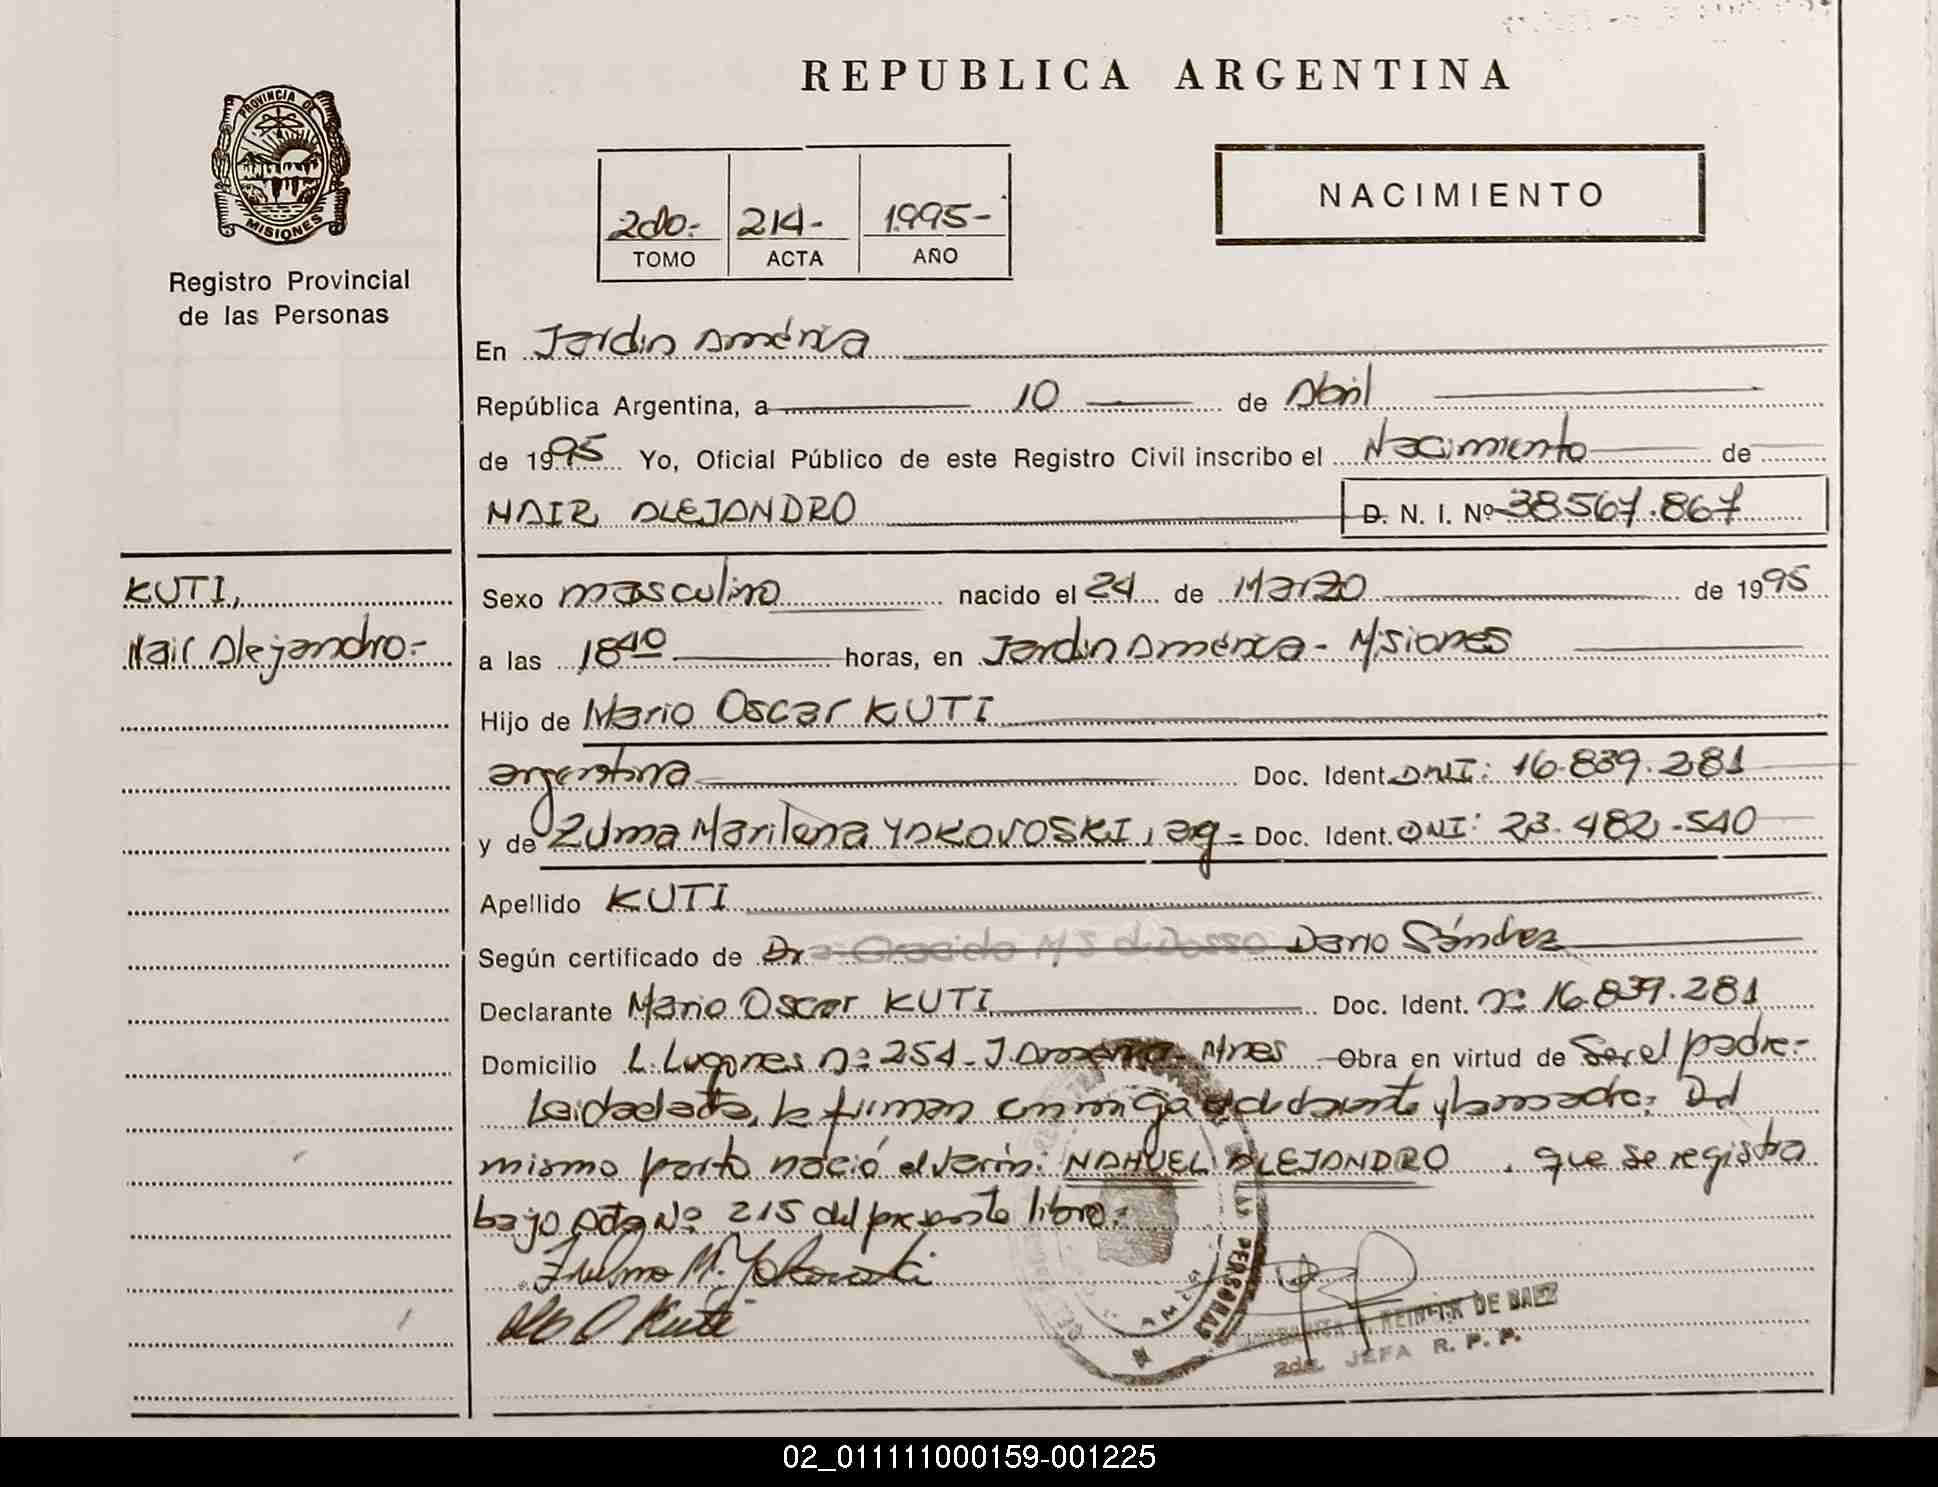 REPUBLICA ARGENTINA
PROVINCIA DE
MISIONES
Registro Provincial
de las Personas
2do.- 214- 1.995-
TOMO ACTA AÑO
NACIMIENTO
En Jardin América
República Argentina, a 10 de Abril
de 1995 Yo, Oficial Público de este Registro Civil inscribo el Nacimiento de
NAIR ALEJANDRO D. N. I. Nº 38.567.867
KUTI,
Nair Alejandro.-
Sexo masculino nacido el 24 de Marzo de 1995
a las 18 40 horas, en Jardin América - Misiones
Hijo de Mario Oscar KUTI
argentina Doc. Ident. DNI: 16.839.281
y de Zulma Marilena YAKOVOSKI, arg= Doc. Ident. DNI: 23.482.540
Apellido KUTI
Según certificado de Dr Dario Sánchez
Declarante Mario Oscar KUTI Doc. Ident. nº 16.839.281
Domicilio L. Lugones nº 254 - J. América - Mnes Obra en virtud de Ser el padre.-
Leida el acta, la firman conmigo el declarante y la madre: Del
mismo parto nació el varón: NAHUEL ALEJANDRO, que se registra
bajo Acta Nº 215 del presente libro.-
Zulma M. Yakovoski
O Kuti
LAS PERSONAS
DE BAEZ
2da. JEFA R. P. P.
02_011111000159-001225